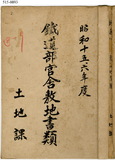 昭和十五六年度
鐵道部官舍敷地書類
土地課